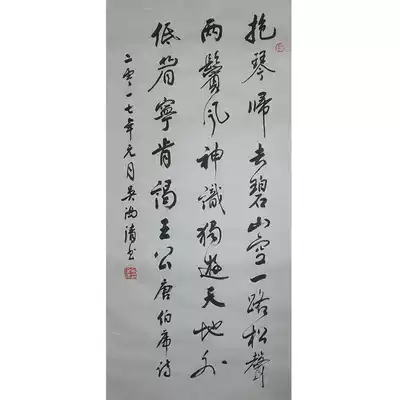 抱琴歸去碧山空一路松聲
兩鬢風神識獨遊天地外
低眉寧肯謁王公唐伯虎詩
二零一七年元月吳鴻清書